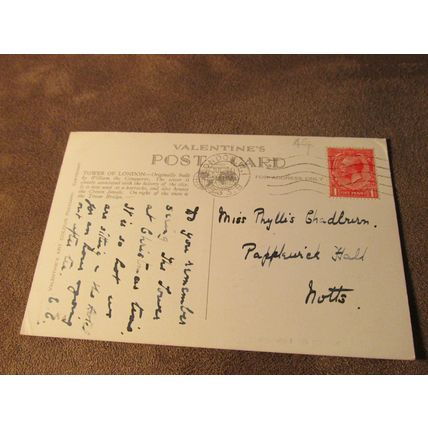 VALENTINE'S
POST CARD
TOWER OF LONDON—Originally built
by William the Conqueror. The tower is
closely associated with the history of the city.
It is now used as a barracks, and also houses
the Crown Jewels. On right of the tower is
the Tower Bridge.
FOR ADDRESS ONLY
LONDON
Miss Phyllis Chadburn.
Papplewick Hall
Notts.
Do you remember
seeing the Tower
at Christmas time
It is so hot we
are sitting in the
for an hour
out after tea
ONE PENNY
1 1